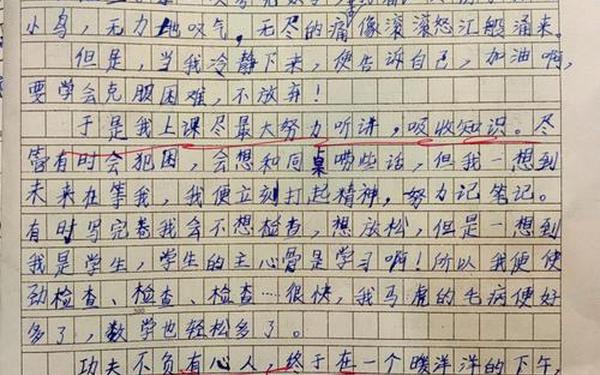 小鸟，无力地叹气。无尽的痛像滚滚怒江般涌来。
但是，当我冷静下来，便告诉自己，加油啊，
要学会克服困难，不放弃！
于是我上课尽最大努力听讲，吸收知识。尽
管有时会犯困，会想和同桌唠些话，但我一想到
未来在等我，我便立刻打起精神，努力记笔记。
有时写完卷我会不想检查，想放松，但是一想到
我是学生，学生的主心骨是学习啊！所以我便使
劲检查、检查、检查…很快，我马虎的毛病便好
多了，数学也轻松多了。
功夫不负有心人，终于在一个暖洋洋的下午，